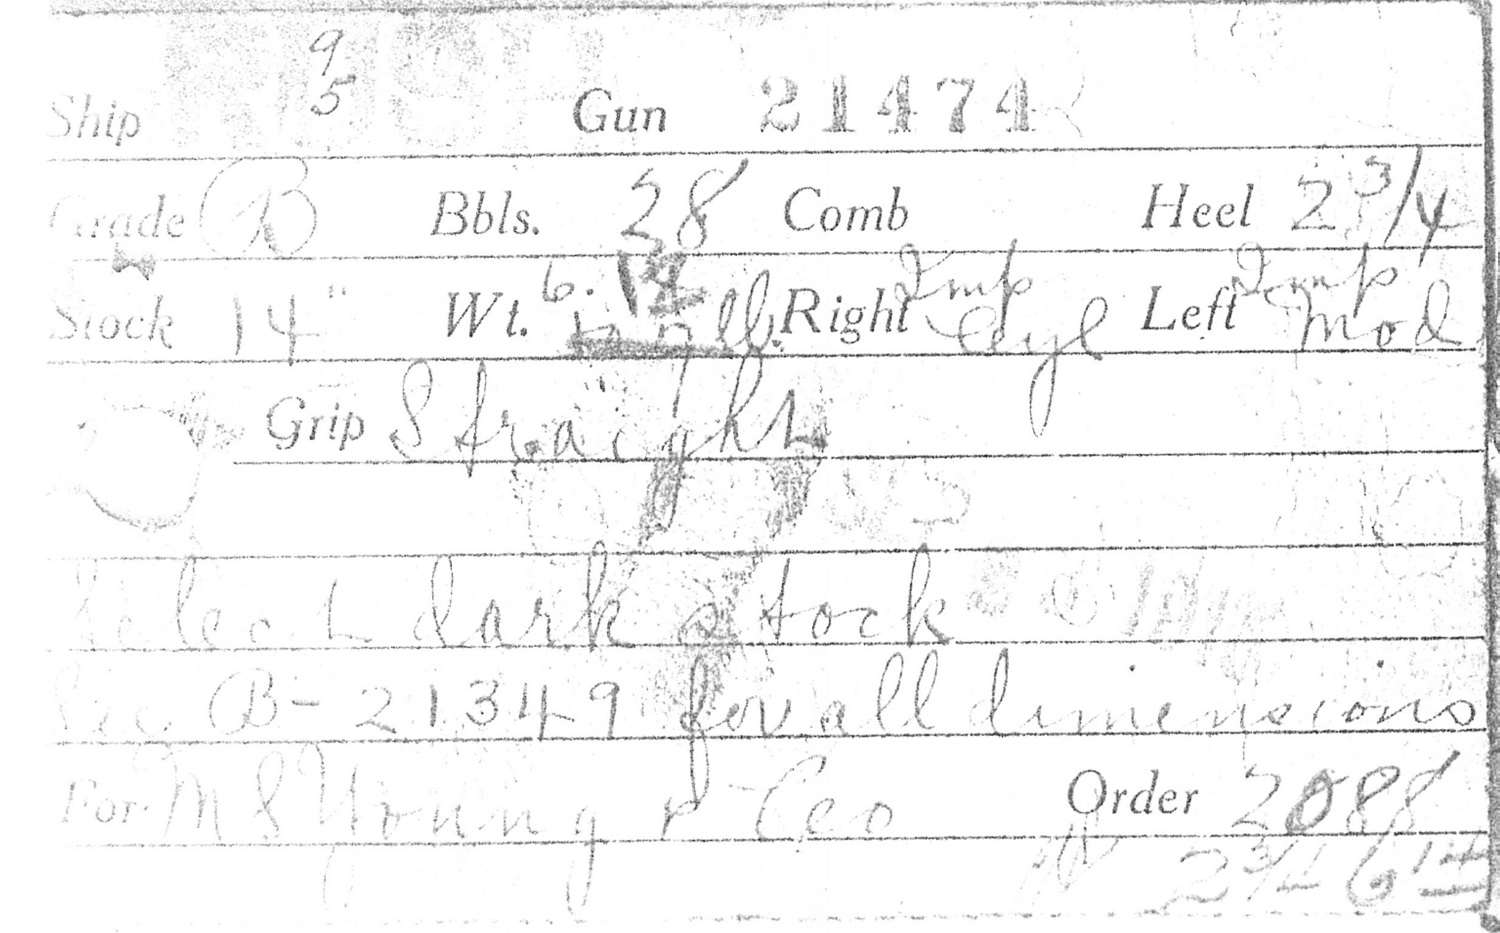 9
Ship 5 Gun 21474
Grade B Bbls. 28 Comb Heel 2 3/4
Stock 14" Wt. 6. 14 lb. Right Imp Cyl Left Imp Mod
Grip Straight
Select dark stock
See B-21349 for all dimensions
For M S Young & Co Order 2088
2 3/4 6 14